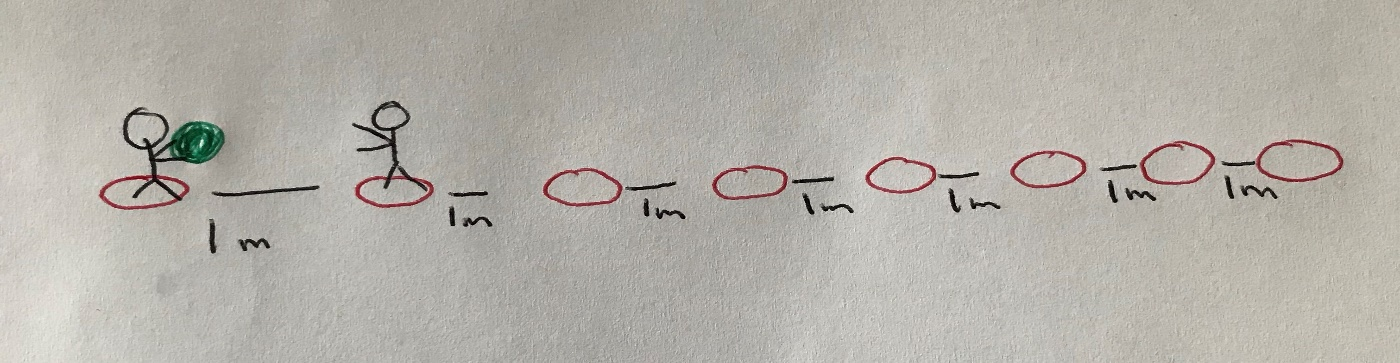 1 m
1m
1m
1m
1m
1m
1m